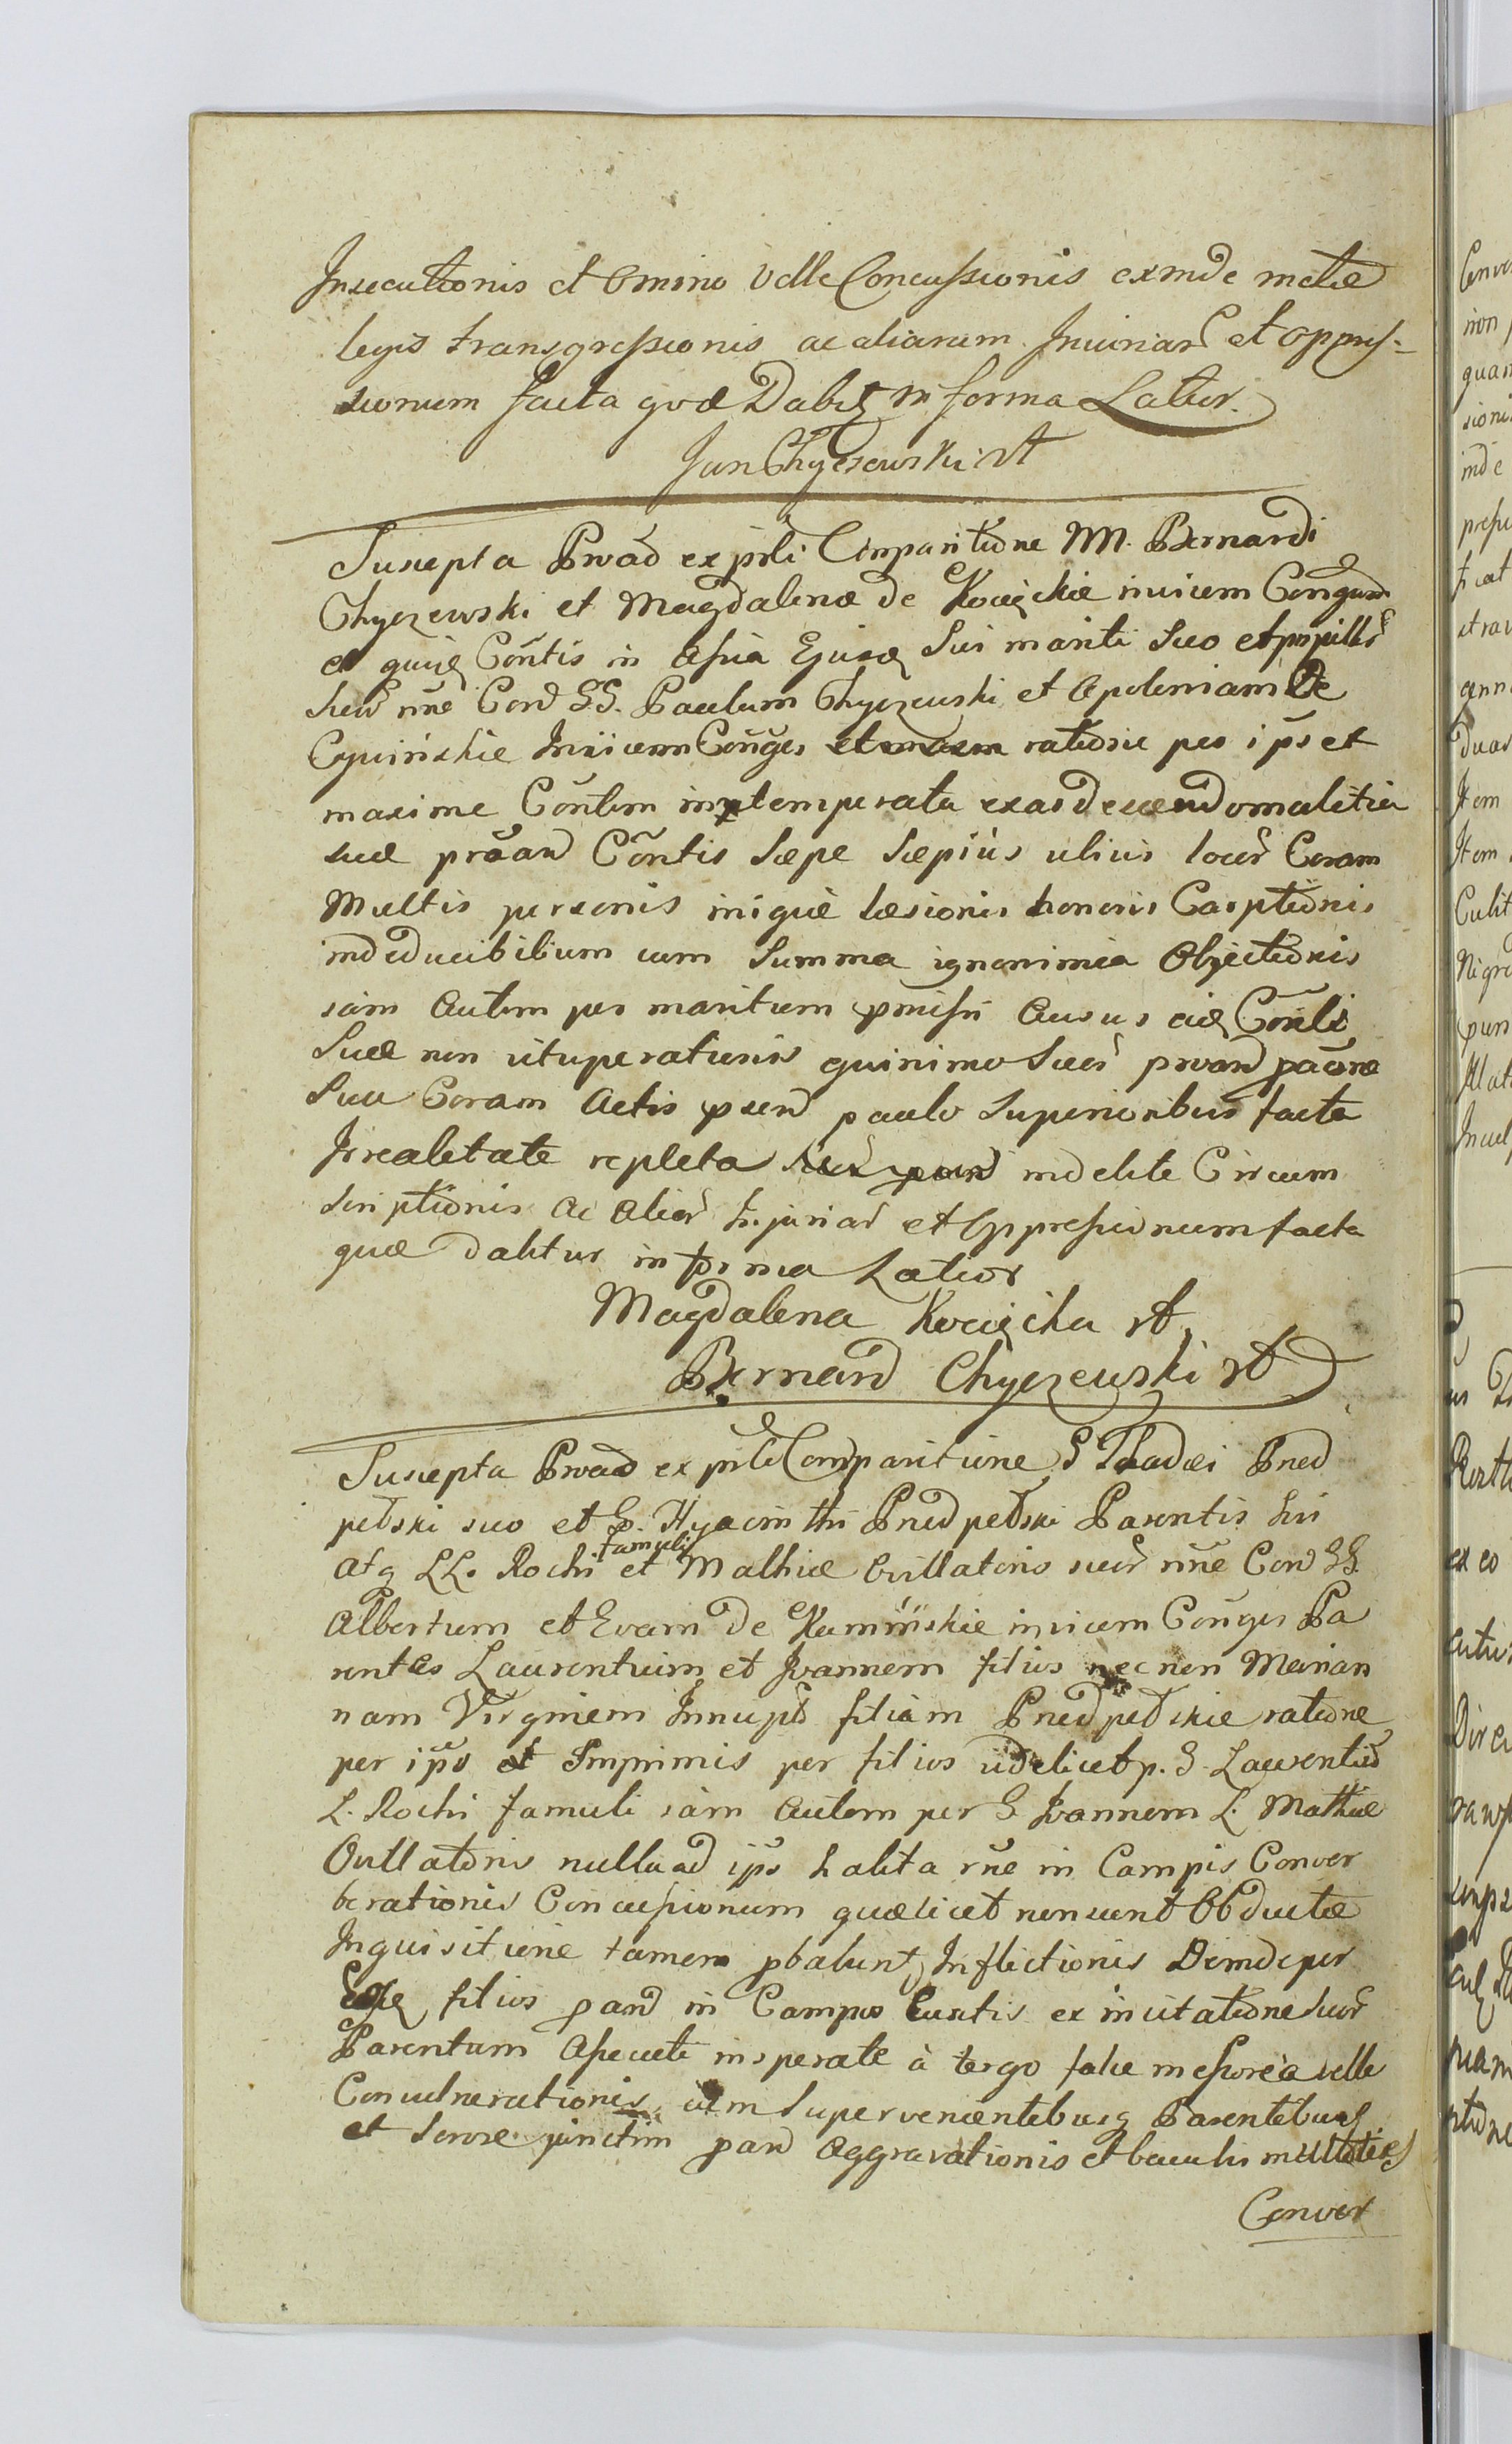 Insecutionis et Omino velle Concussionis exinde metae
legis transgressionis ac aliarum Iniuriar et oppres=
sionum facta quae Dabit in forma Latior.
Jan Chyczewski mp
Suscepta Prnad ex prli Comparitione MM. Bernardi
Chyczewski et Magdalenae de Kocięckie invicem Congum
et quidẽ Contis in assia Ejusq Sui mariti suo et prpillr
suor nñe Con GG. Paulum Chyczewski et Apoloniam De
Czywińskie Invicem Conges ratione per ips et
maxime Contem intemperata exardescendo malitia
sua prãan Contis saepe saepiùs ulius locor Coram
Multis personis iniquè laesionis honoris Carptionis
indeducibilium cum Summa ignonimia Objectionis
iam Autem per maritum pmissi Ausus eiq Contis
Suae non vituperationis quinimo Suor prnad pãone
Sua Coram Actis psen paulo Superioribus facta
Irrealitate repleta indebite Circum
scriptionis ac alior Injuriar et Oppressionum facta
quae dabitur in forma Latior
Magdalena Kocięcka mp
Bernard Chyczewski mp
Suscepta Prnad ex prli Comparitione G Thadaei Pned
petski suo et G. Hyacinthi Pnedpetski Parentis sui
atq LL. Rochi famuli et Mathiae Ovillatoris suor nñe Con GG
Albertum et Evam De Kamińskie invicem Conges Pa
rentes Laurentium et Joannem filios necnon Marian
nam Virginem Innupt filiam Pnedpetskie ratione
per ips et Imprimis per filios videlicet p. G. Laurentiu
L. Rochi famuli iam Autem per G Joannem L. Mathiae
Ovillatoris nulla ad ips habita rñe in Campis Conver
berationis Concussionum quae licet non sunt Obductae
Inquisitione tamen pbabunt Inflictionis Deinde per
filios pand in Campos Euntis ex incitatione suor
Parentum Assecuti insperate à tergo falce messorea velle
Convulnerationis, cum Supervenientibusq Parentibus
et Sorore junctim pan Aggravationis et baculis multoties
Conver